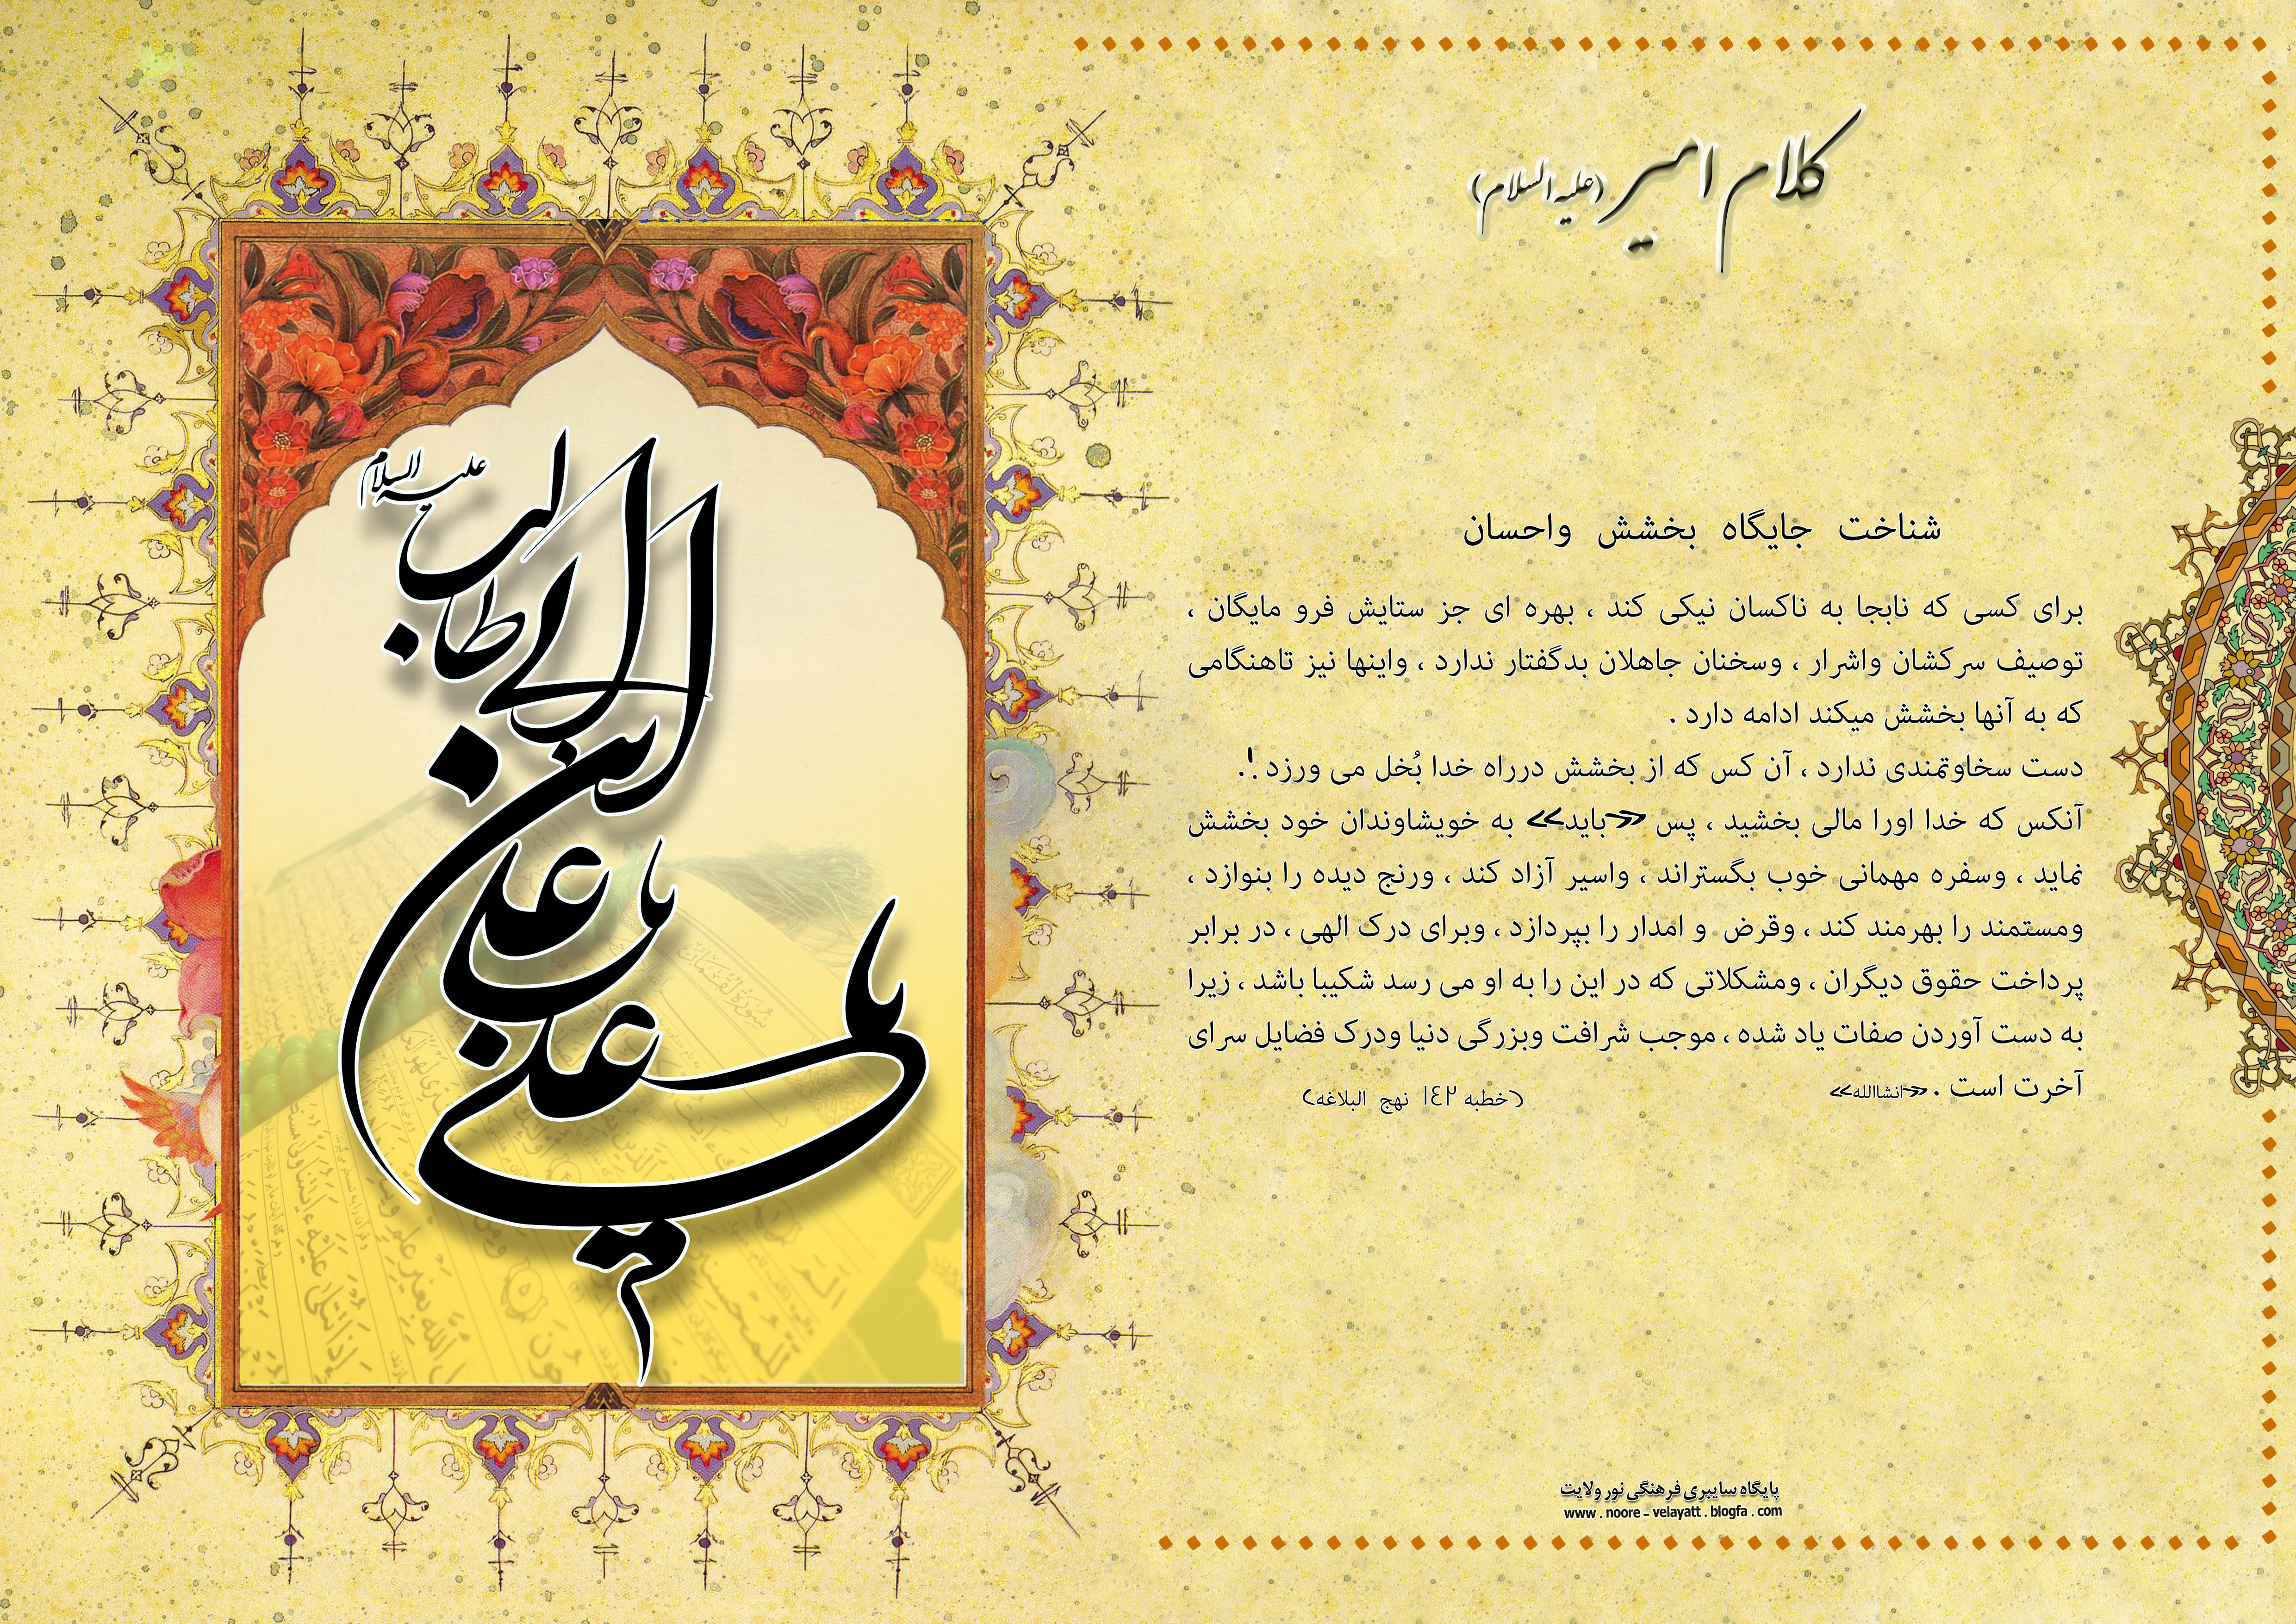 کلام امیر (علیه السلام)
شناخت جایگاه بخشش واحسان
برای کسی که نابجا به ناکسان نیکی کند ، بهره ای جز ستایش فرو مایگان ،
توصیف سرکشان واشرار ، وسخنان جاهلان بدگفتار ندارد ، واینها نیز تاهنگامی
که به آنها بخشش میکند ادامه دارد .
دست سخاوتمندی ندارد ، آن کس که از بخشش درراه خدا بُخل می ورزد !.
آنکس که خدا اورا مالی بخشید ، پس «باید» به خویشاوندان خود بخشش
نماید ، وسفره مهمانی خوب بگستراند ، واسیر آزاد کند ، ورنج دیده را بنوازد ،
ومستمند را بهرمند کند ، وقرض و امدار را بپردازد ، وبرای درک الهی ، در برابر
پرداخت حقوق دیگران ، ومشکلاتی که در این را به او می رسد شکیبا باشد ، زیرا
به دست آوردن صفات یاد شده ، موجب شرافت وبزرگی دنیا ودرک فضایل سرای
آخرت است . «انشاالله» (خطبه ۱٤۲ نهج البلاغه)
پایگاه سایبری فرهنگی نور ولایت
www . noore - velayatt . blogfa . com
علیه السلام
علی ابن ابی طالب
یا علی
یا علی